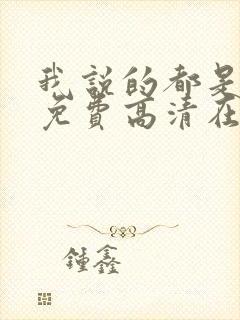 我说的都是
免费高清在
锺鑫